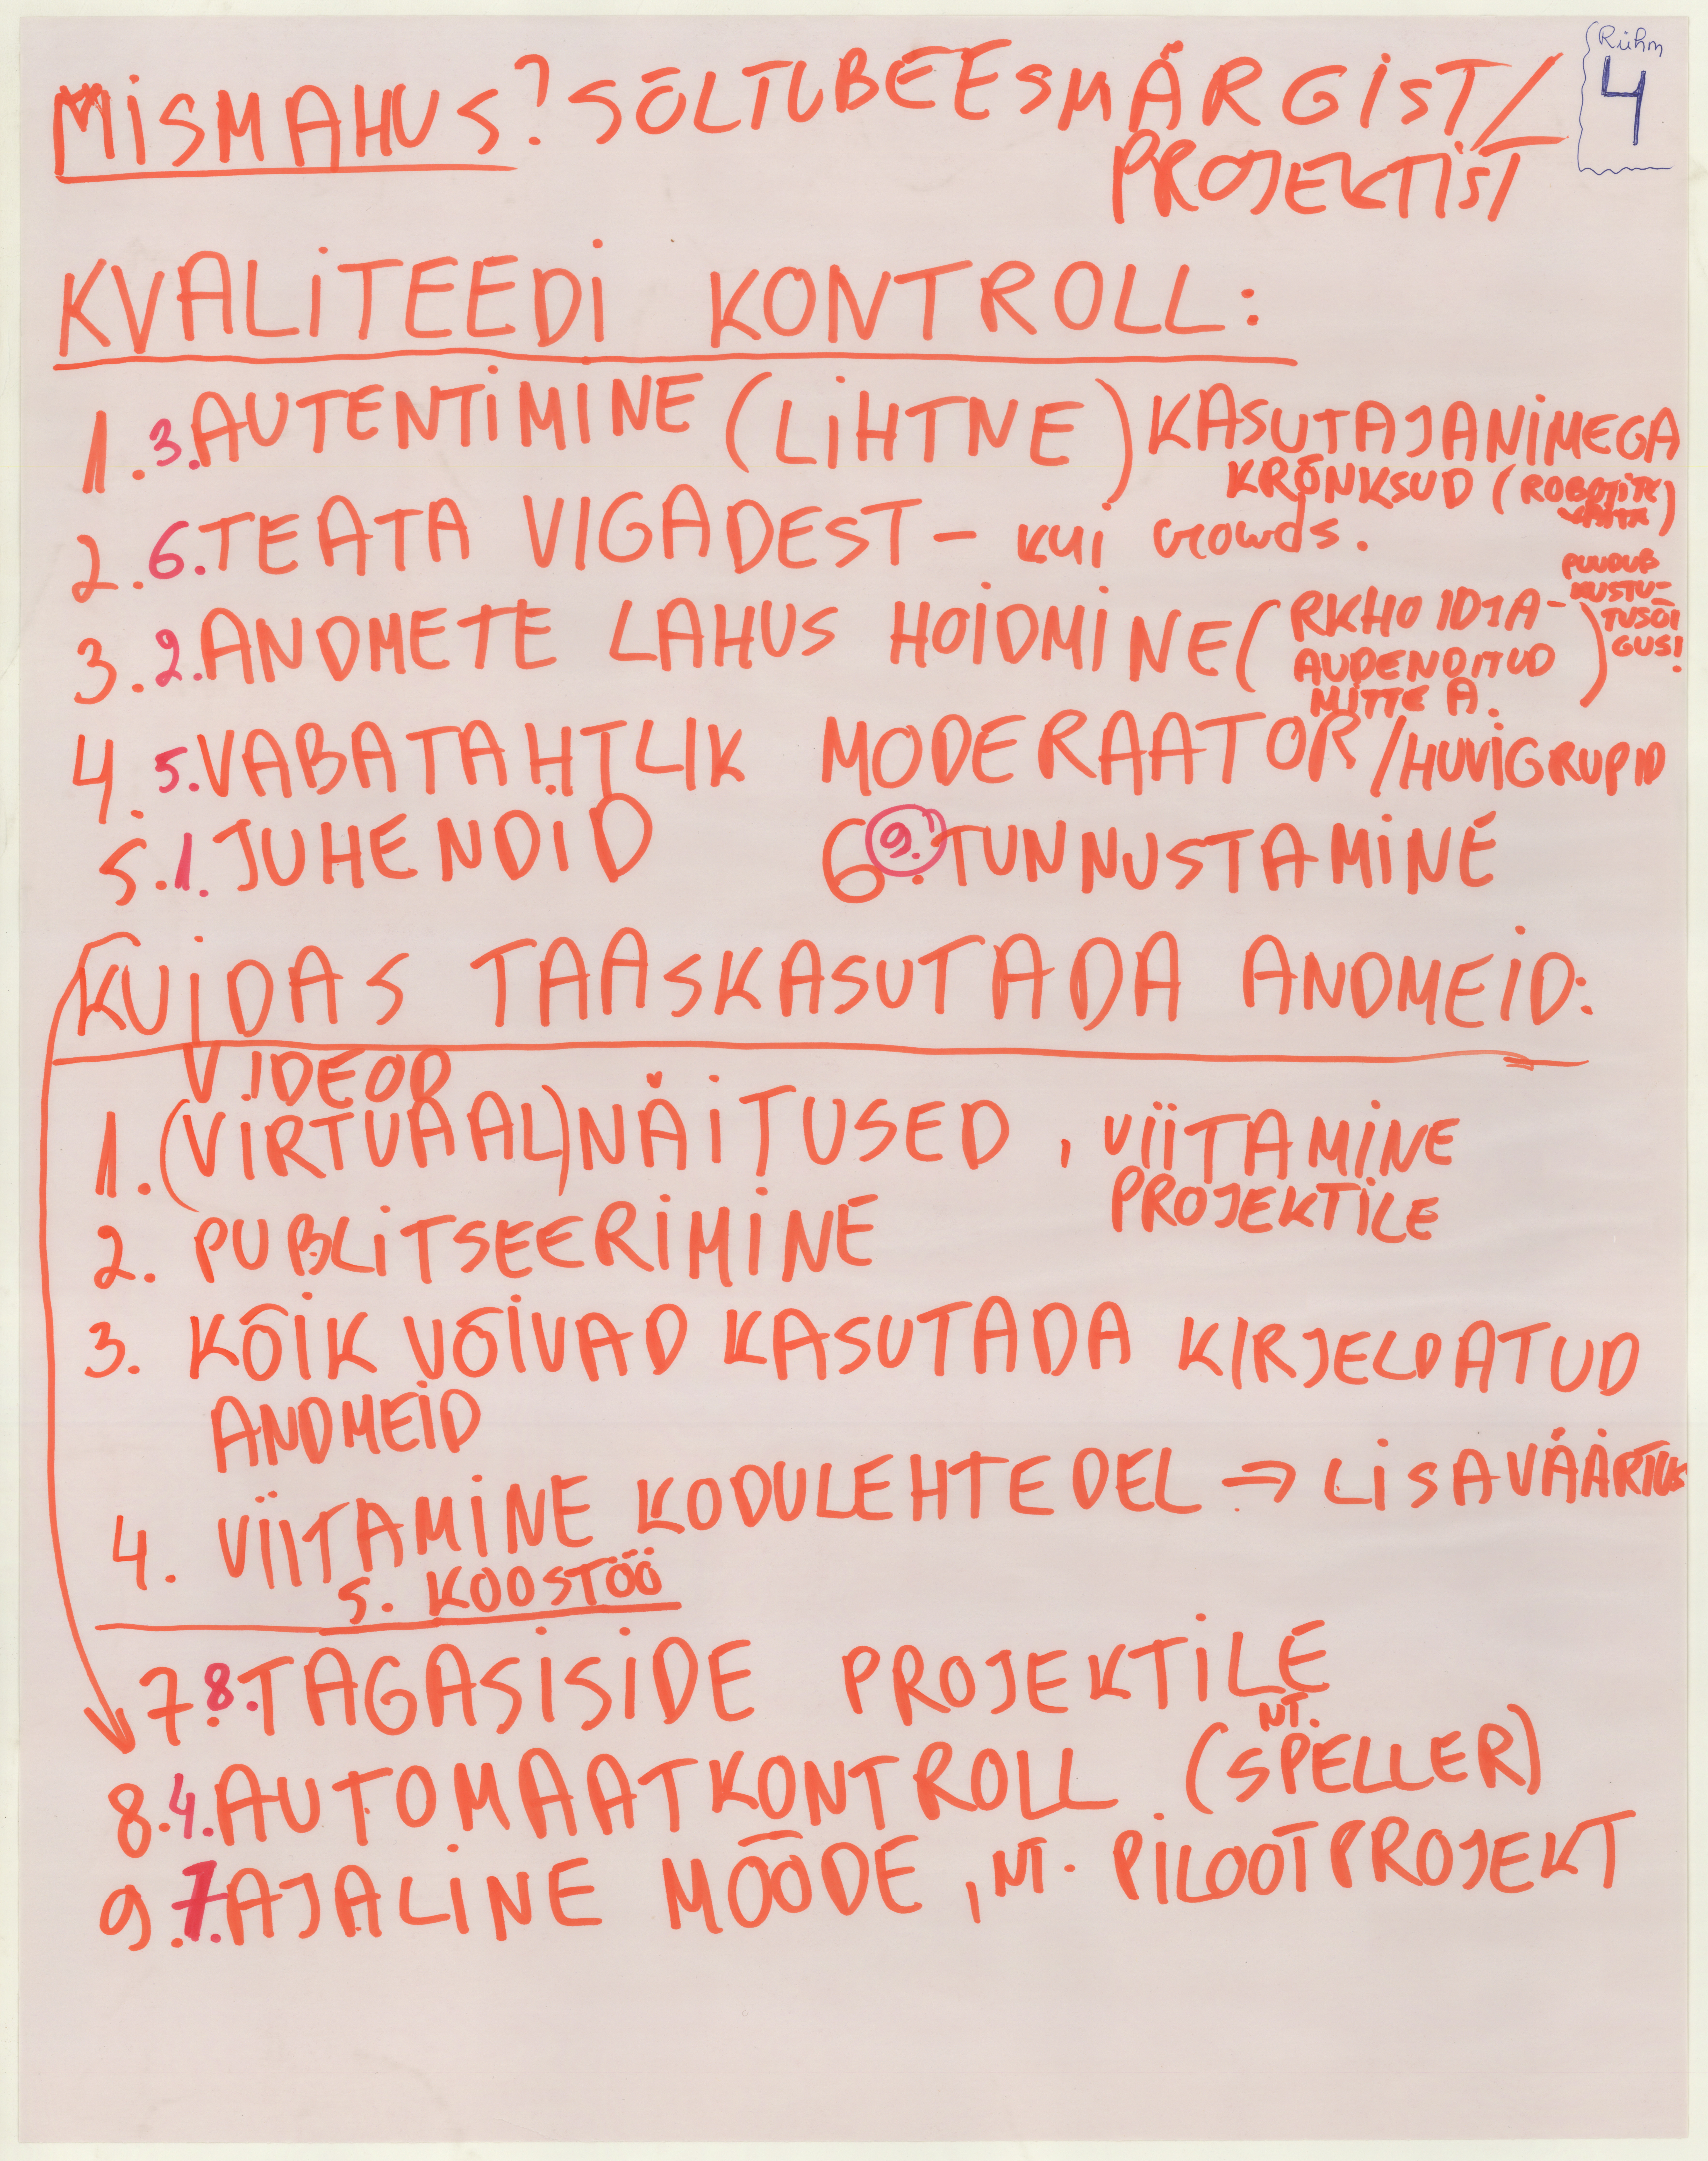 Rühm
4
MIS MAHUS? SÕLTUB EESMÄRGIST/
PROJEKTIST
KVALITEEDI KONTROLL:
1. 3. AUTENTIMINE (LIHTNE) KASUTAJANIMEGA
KRÕNKSUD (ROBOTITE
VASTA)
2. 6. TEATA VIGADEST – kui crowds.
3. 2. ANDMETE LAHUS HOIDMINE (RKHOIDJA-
AUDENDITUD
MITTE A.)
PUUDUB
KUSTU-
TUSÕI
GUS!
4. 5. VABATAHTLIK MODERAATOR/HUVIGRUPID
5. 1. JUHENDID 6. 9. TUNNUSTAMINE
KUIDAS TAASKASUTADA ANDMEID:
VIDEOD
1. (VIRTUAAL)NÄITUSED, VIITAMINE
PROJEKTILE
2. PUBLITSEERIMINE
3. KÕIK VÕIVAD KASUTADA KIRJELDATUD
ANDMEID
4. VIITAMINE KODULEHTEDEL ⇒ LISAVÄÄRTUS
5. KOOSTÖÖ
7. 8. TAGASISIDE PROJEKTILE
NT.
8. 4. AUTOMAATKONTROLL (SPELLER)
9. 7. AJALINE MÕÕDE, NT. PILOOTPROJEKT